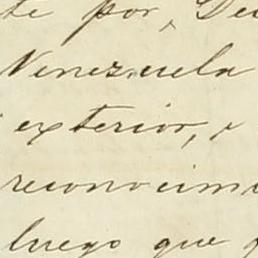 te por, De
Venezuela
exterior, y
reconocim
luego que